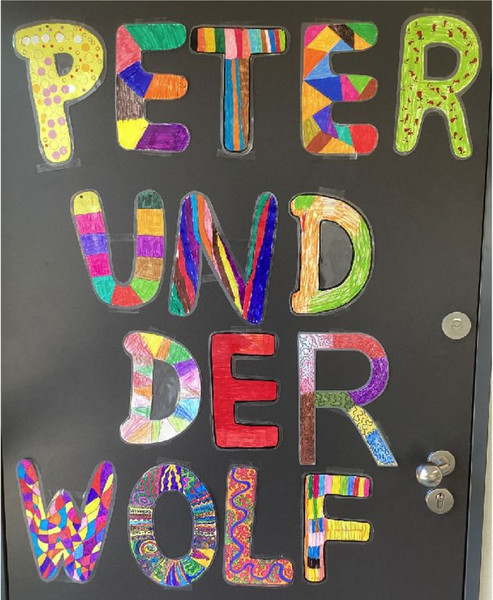 PETER
UND
DER
WOLF